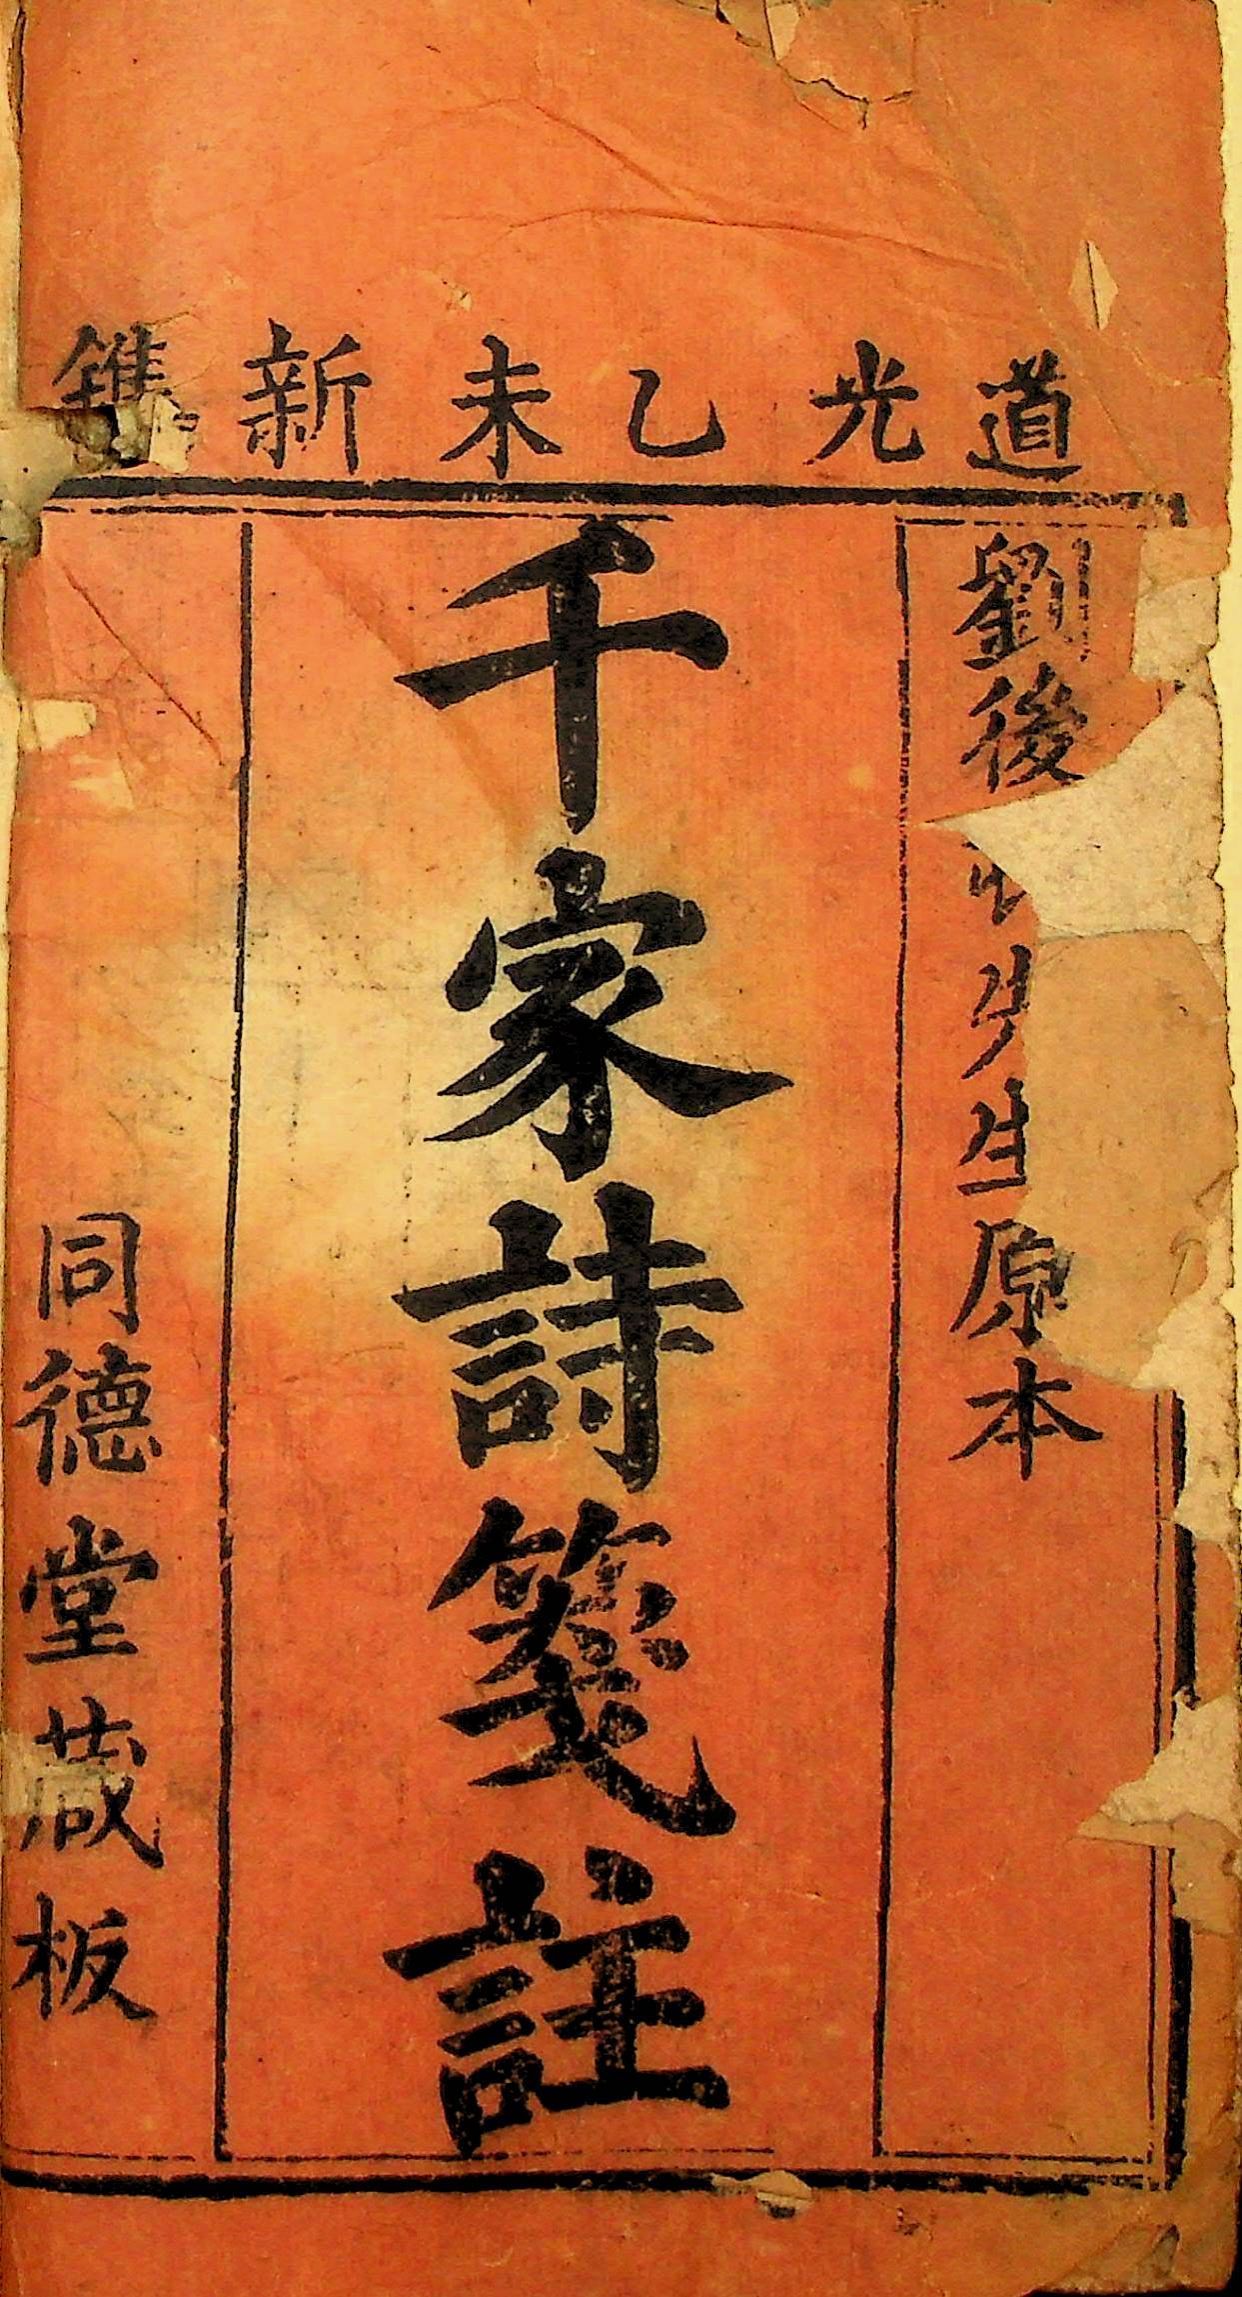 道光乙未新鐫
劉後先生原本
千家詩箋註
同德堂藏板